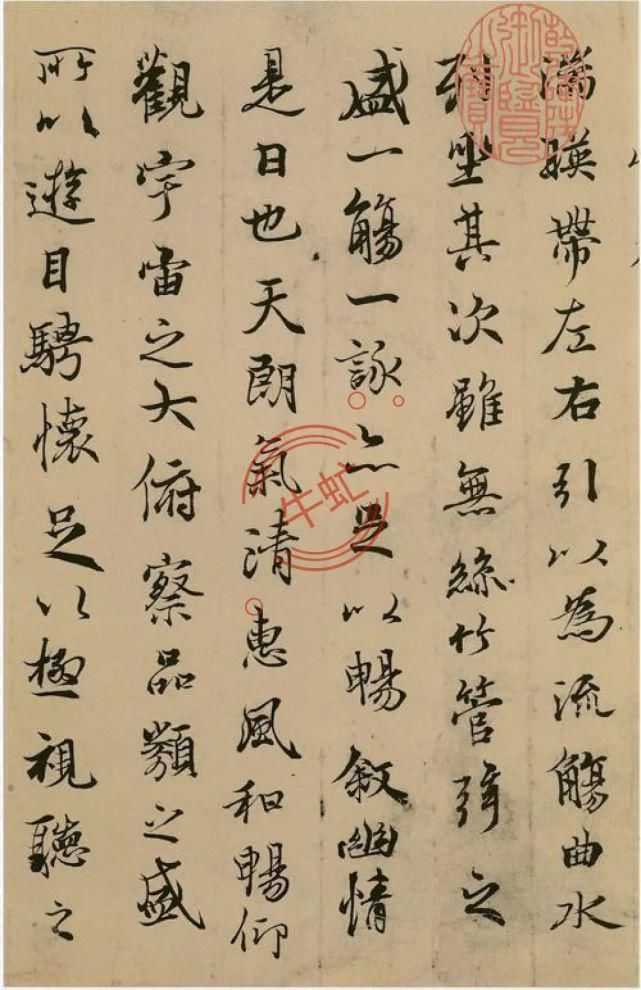 湍暎帶左右引以為流觴曲水
列坐其次雖無絲竹管弦之
盛一觴一詠亦足以暢敘幽情
是日也天朗氣清惠風和暢仰
觀宇宙之大俯察品類之盛
所以遊目騁懷足以極視聽之
乾隆御覽之寶
牛虹